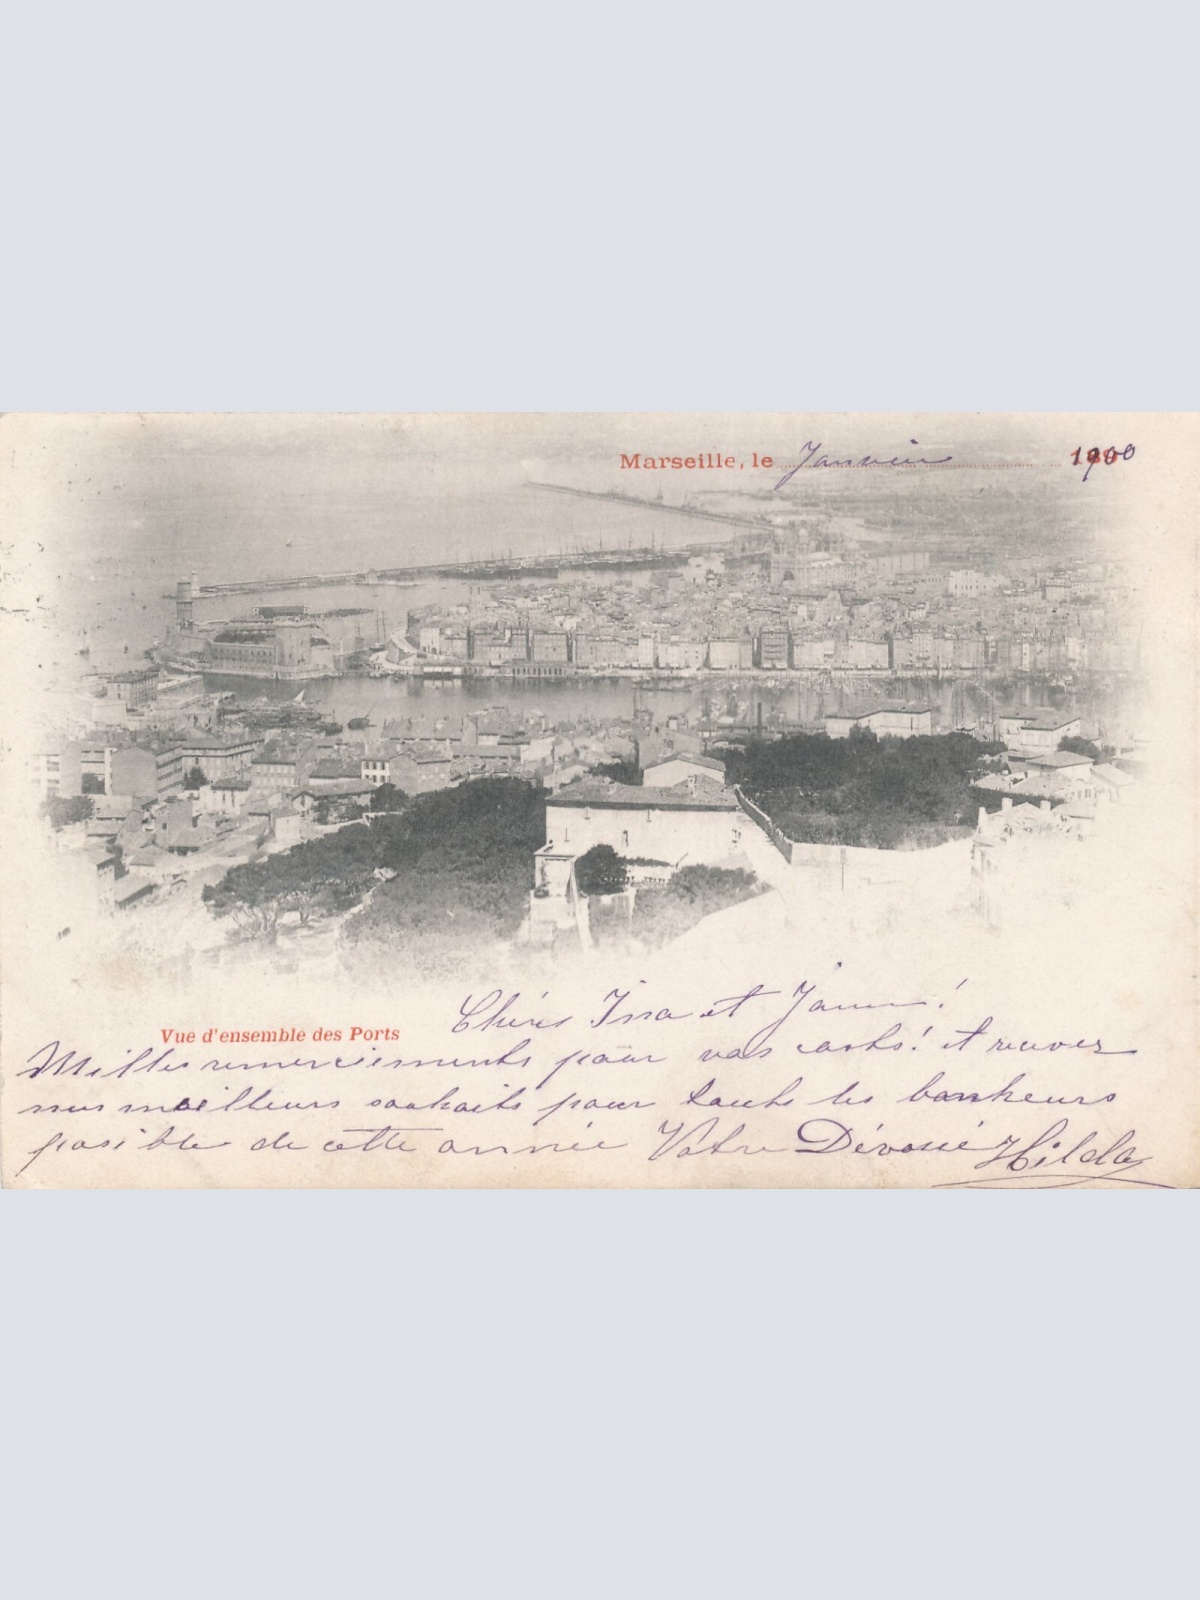 Marseille, le Janvier 1900
Vue d'ensemble des Ports
Chéres Issa et
Milles remerciements pour vos carts! et recevez
mes meilleurs souhaits pour touts les bonheurs
posible de cette année Votre Dévoué Hilda